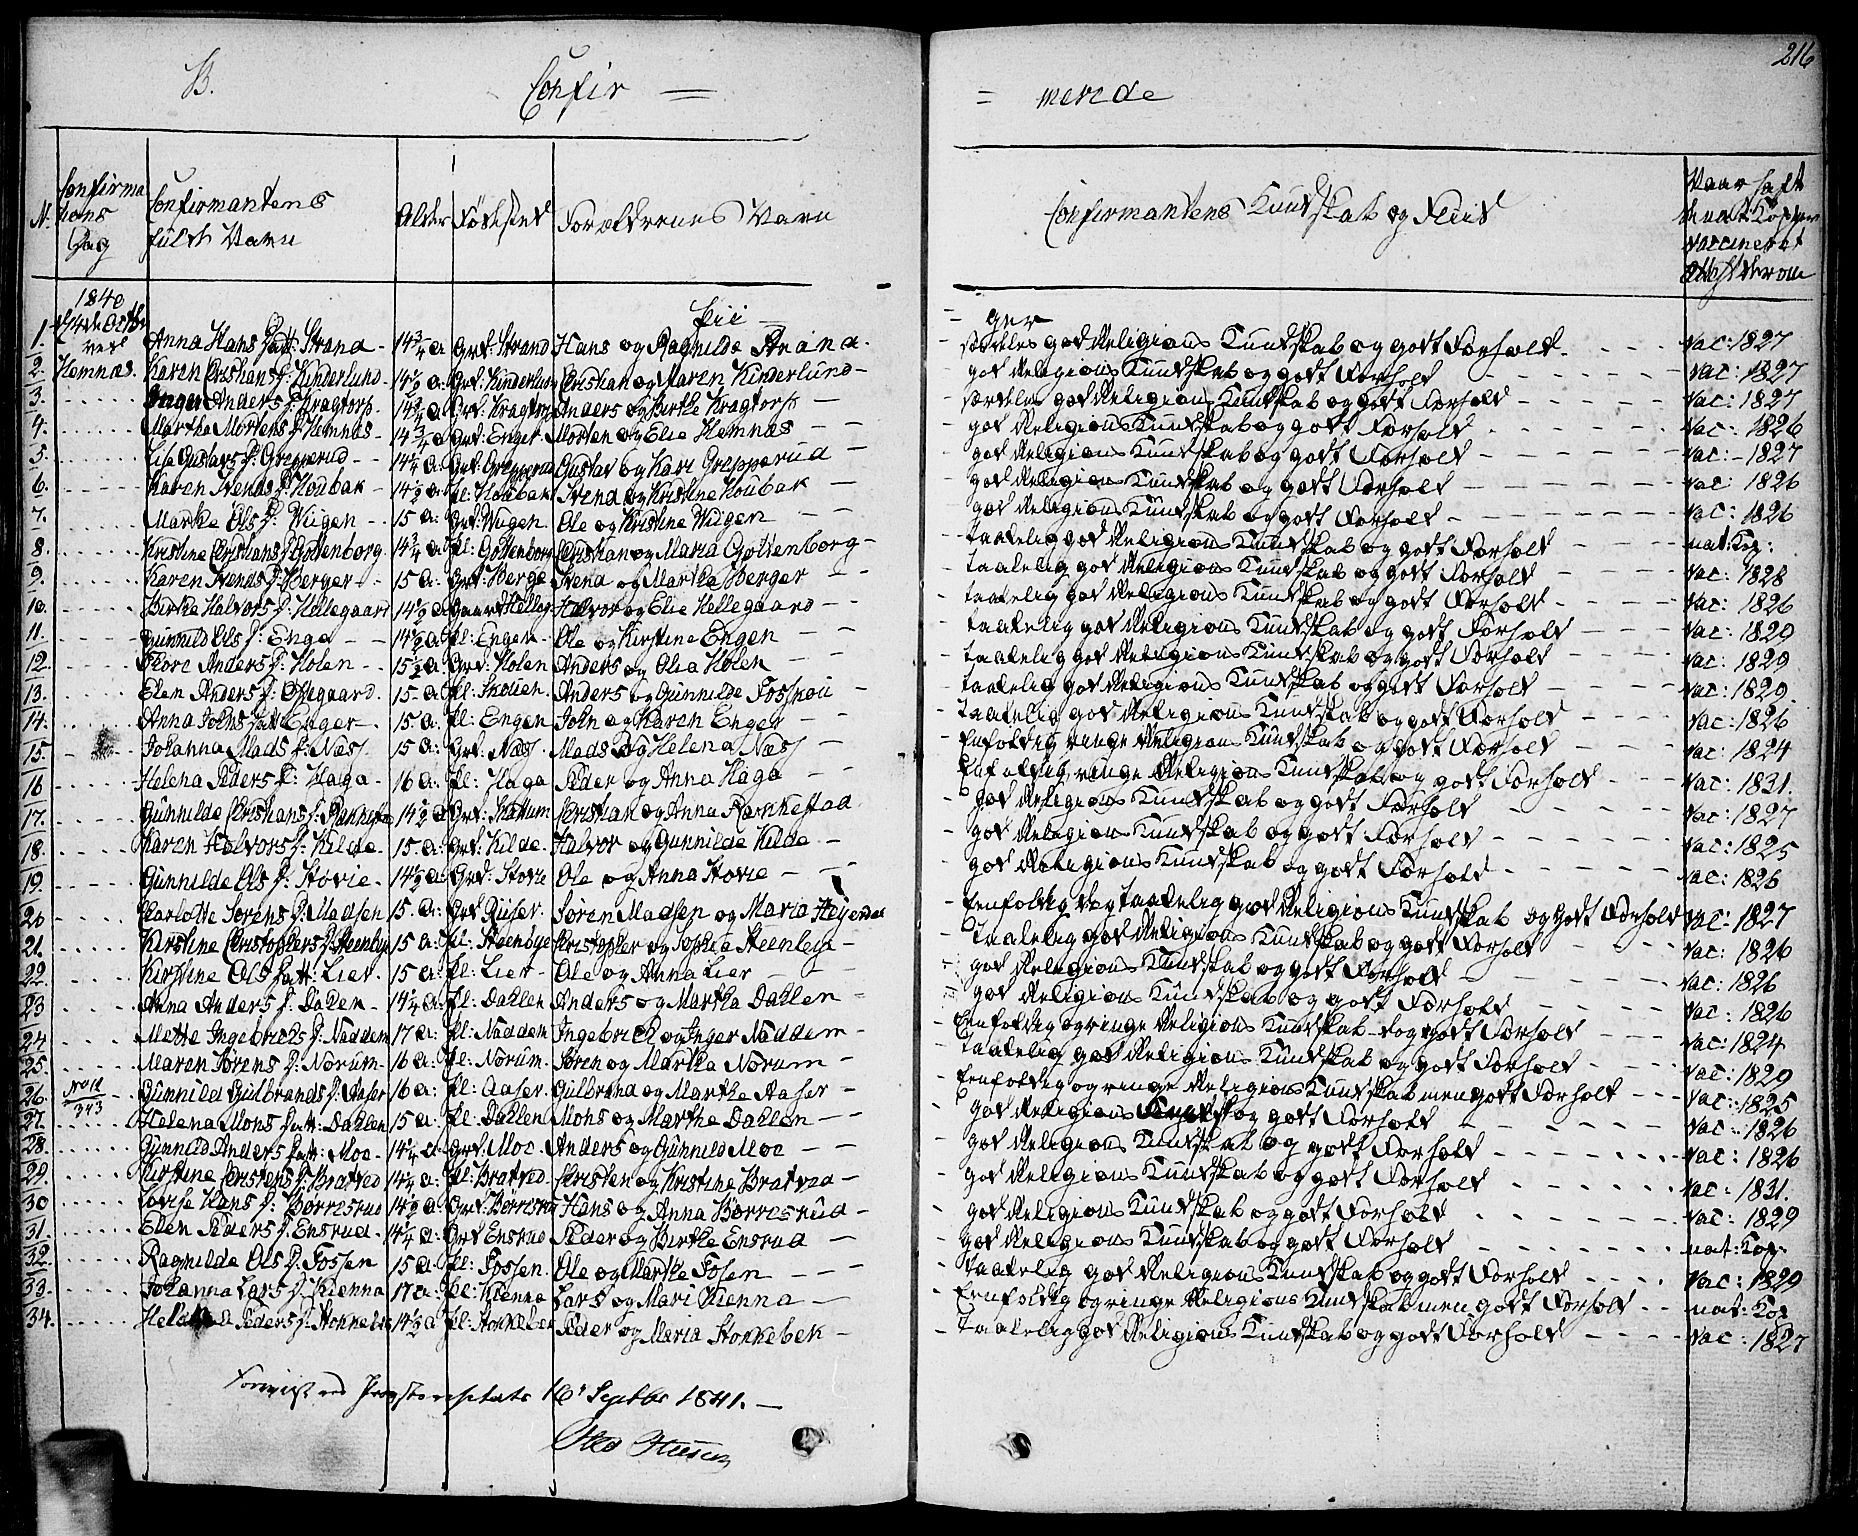 216
B. Confir = = merede
N. Confirmations Dag Confirmantens fulde Navn Alder Fødested Forældrenes Navn Confirmantens Kundskab og Flid
Pii - ger
1840
1. Anna Hans Datt: Strand - 14¾ a Grd: Strand Hans og Ragnilde Strand. - særdeles god Religions Kundskab og godt Forhold - Vac: 1827
2. Hemnæs. Karen Cristians D: Kinderlund - 14½ a: Grd: Kinderlund Cristian og Maren Kinderlund - god Religions Kundskab og godt Forhold - Vac: 1827
3. Inger Anders D: Kragtorp. 14¾ a Grd: Kragtorp Anders og Birthe Kragtorp - særdeles god Religions Kundskab og godt Forhold - Vac: 1827
4. Martha Mortens D: Hemnæs - 14¾ a Grd: Enger. Morten og Elie Hemnæs - god Religions Kundskab og godt Forhold - Vac: 1826
5. Lise Gustavs D: Grepperud - 14¼ a. Grd: Grepperud Gustav og Kari Grepperud - god Religions Kundskab og godt Forhold - Vac: 1827
6. Karen Svends D: Houbak - 14½ a Pl: Houbak Svend og Kristine Houbak - god Religions Kundskab og godt Forhold - Vac: 1826
7. Marthe Ols D: Wiigen - 15 a: Grd: Wiigen Ole og Kristine Wiigen - god Religions Kundskab og godt Forhold - Vac: 1826
8. Kristine Cristians D: Gottenborg. 14¾ a Pl: Gottenborg Cristian og Maria Gottenborg - taalelig god Religions Kundskab og godt Forhold - nat: Kop:
9. Karen Svends D: Berger - 15 a: Grd: Berge Svend og Martha Berger - taalelig god Religions Kundskab og godt Forhold - Vac: 1828
10. Birthe Halvors D: Hellegaard 14½ a Halvor og Elie Hellegaard - taalelig god Religions Kundskab og godt Forhold - Vac: 1826
11. Gunnild Ols D: Enga - 14½ a Pl: Engen - Ole og Kirstine Engen - taalelig god Religions Kundskab og godt Forhold - Vac: 1829
12. Thore Anders D: Holen - 15½ a. Grd: Holen Anders og Olea Holen - taalelig god Religions Kundskab og godt Forhold - Vac: 1829
13. Elen Anders D: Opegaard. 15 a. Pl: Skouen. Anders og Gunnilde Fosskou - taalelig god Religions Kundskab og godt Forhold - Vac: 1829
14. Anna Johns Datt: Enger - 15 a: Pl: Engen John og Karen Enger - taalelig god Religions Kundskab og godt Forhold - Vac: 1826
15. Johanna Mads D: Næs. 15 a: Grd: Næs. Mads og Helena Næs - Enfoldig, ringe Religions Kundskab og godt Forhold - Vac: 1824
16 Helena Peders D: Haga - 16 a: Pl: Haga Peder og Anna Haga - Enfoldig, ringe Religions Kundskab og godt Forhold - Vac: 1831.
17. Gunnilde Cristians D: 14½ a Cristian og Anna Ramkestad god Religions Kundskab og godt Forhold - Vac: 1827
18. Karen Halvors D: Kilde - 15 a: Grd: Kilde. Halvor og Gunnilde Kilde - god Religions Kundskab og godt Forhold - Vac: 1825
19. Gunnilde Ols D: Stovie - 14½ a Grd: Stovie Ole og Anna Stovie - god Religions Kundskab og godt Forhold - Vac: 1826
20 Charlotte Sørens D: Madsen 15. a: Grd Riiser. Søren Madsen og Maria - Enfoldig dog taalelig god Religions Kundskab og godt Forhold Vac: 1827
21. Kirstine Cristophers D: Steenbye 15 a: Pl: Steenbye Cristopher og Sophie Steenbye - taalelig god Religions Kundskab og godt Forhold - Vac: 1826
22. Kirstine Ols Datt: Lier. 15 a: Pl: Lier - Ole og Anna Lier - god Religions Kundskab og godt Forhold - Vac: 1826
23 Anna Anders D: Dalen - 14¼ a Pl: Dahlen Anders og Martha Dahlen - god Religions Kundskab og godt Forhold - Vac: 1826
24 Mette Ingebrichs D: Naddem 17 a: Pl: Naddem Ingebrich og Inger Naddem - Eenfoldig og ringe Religions Kundskab dog godt Forhold - Vac: 1824
25. Maren Sørens D: Norum - 16 a: Pl: Norum - Søren og Martha Norum - taalelig god Religions Kundskab og godt Forhold - Vac: 1829
26. 343 Gunnild Gulbrands D: Aaser 16 a: Pl: Aaser. Gulbrand og Marthe Aaser - Eenfoldig og ringe Religions Kundskab men godt Forhold - Vac: 1825
27. Helena Mons Datt: Dahlen 15 a: Pl: Dahlen Mons og Marthe Dahlen - god Religions og godt Forhold - Vac: 1826
28. Gunnild Anders Datt: Moe - 14¼ a Grd: Moe. Anders og Gunnild Moe - god Religions Kundskab og godt Forhold - Vac: 1826
29. Kirstine Cristens D: Bratved 14¼ a: Pl: Bratved Cristen og Kristine Bratved - god Religions Kundskab og godt Forhold - Vac: 1831.
30 Lovise Hans D: Børresrud 14½ a Grd: Børresrud Hans og Anna Børresrud - god Religions Kundskab og godt Forhold - Vac: 1829
31. Elen Peders D: Ensrud. 14¼ a Grd Ensrud Peder og Birthe Ensrud - god Religions Kundskab og godt Forhold - nat: Kop.
32. Ragnilde Ols D: Fossen 15 a: Pl: Fossen. Ole og Marthe Fossen - taalelig god Religions Kundskab og godt Forhold - Vac: 1829
33. Johanna Lars D: Kienna 17 a: Pl: Kienna Lars og Mari Kienna - Eenfoldig og ringe Religions Kundskab men godt Forhold - nat: Kop
34. Peders D: Stokkebek 14½ a Pl: Stokkebek Peder og Maria Stokkebek - Taalelig god Religions Kundskab og godt Forhold - Vac: 1827
16 Septbr 1841. -